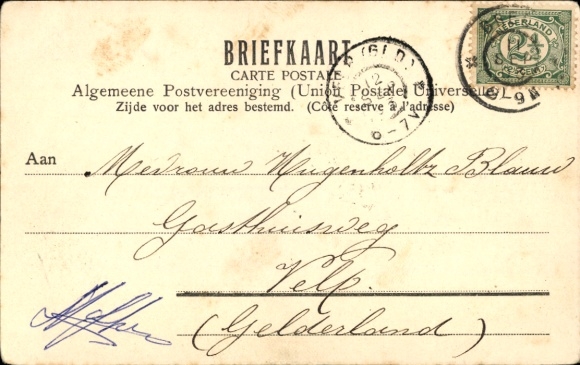 BRIEFKAART
CARTE POSTALE
Algemeene Postvereeniging (Union Postale Universelle)
Zijde voor het adres bestemd. (Côté réservé à l'adresse)
NEDERLAND
2½
(GLD)
12
6-7V
Aan Mevrouw Hugenholtz Blauw
Gasthuisweg
Velp.
(Gelderland)